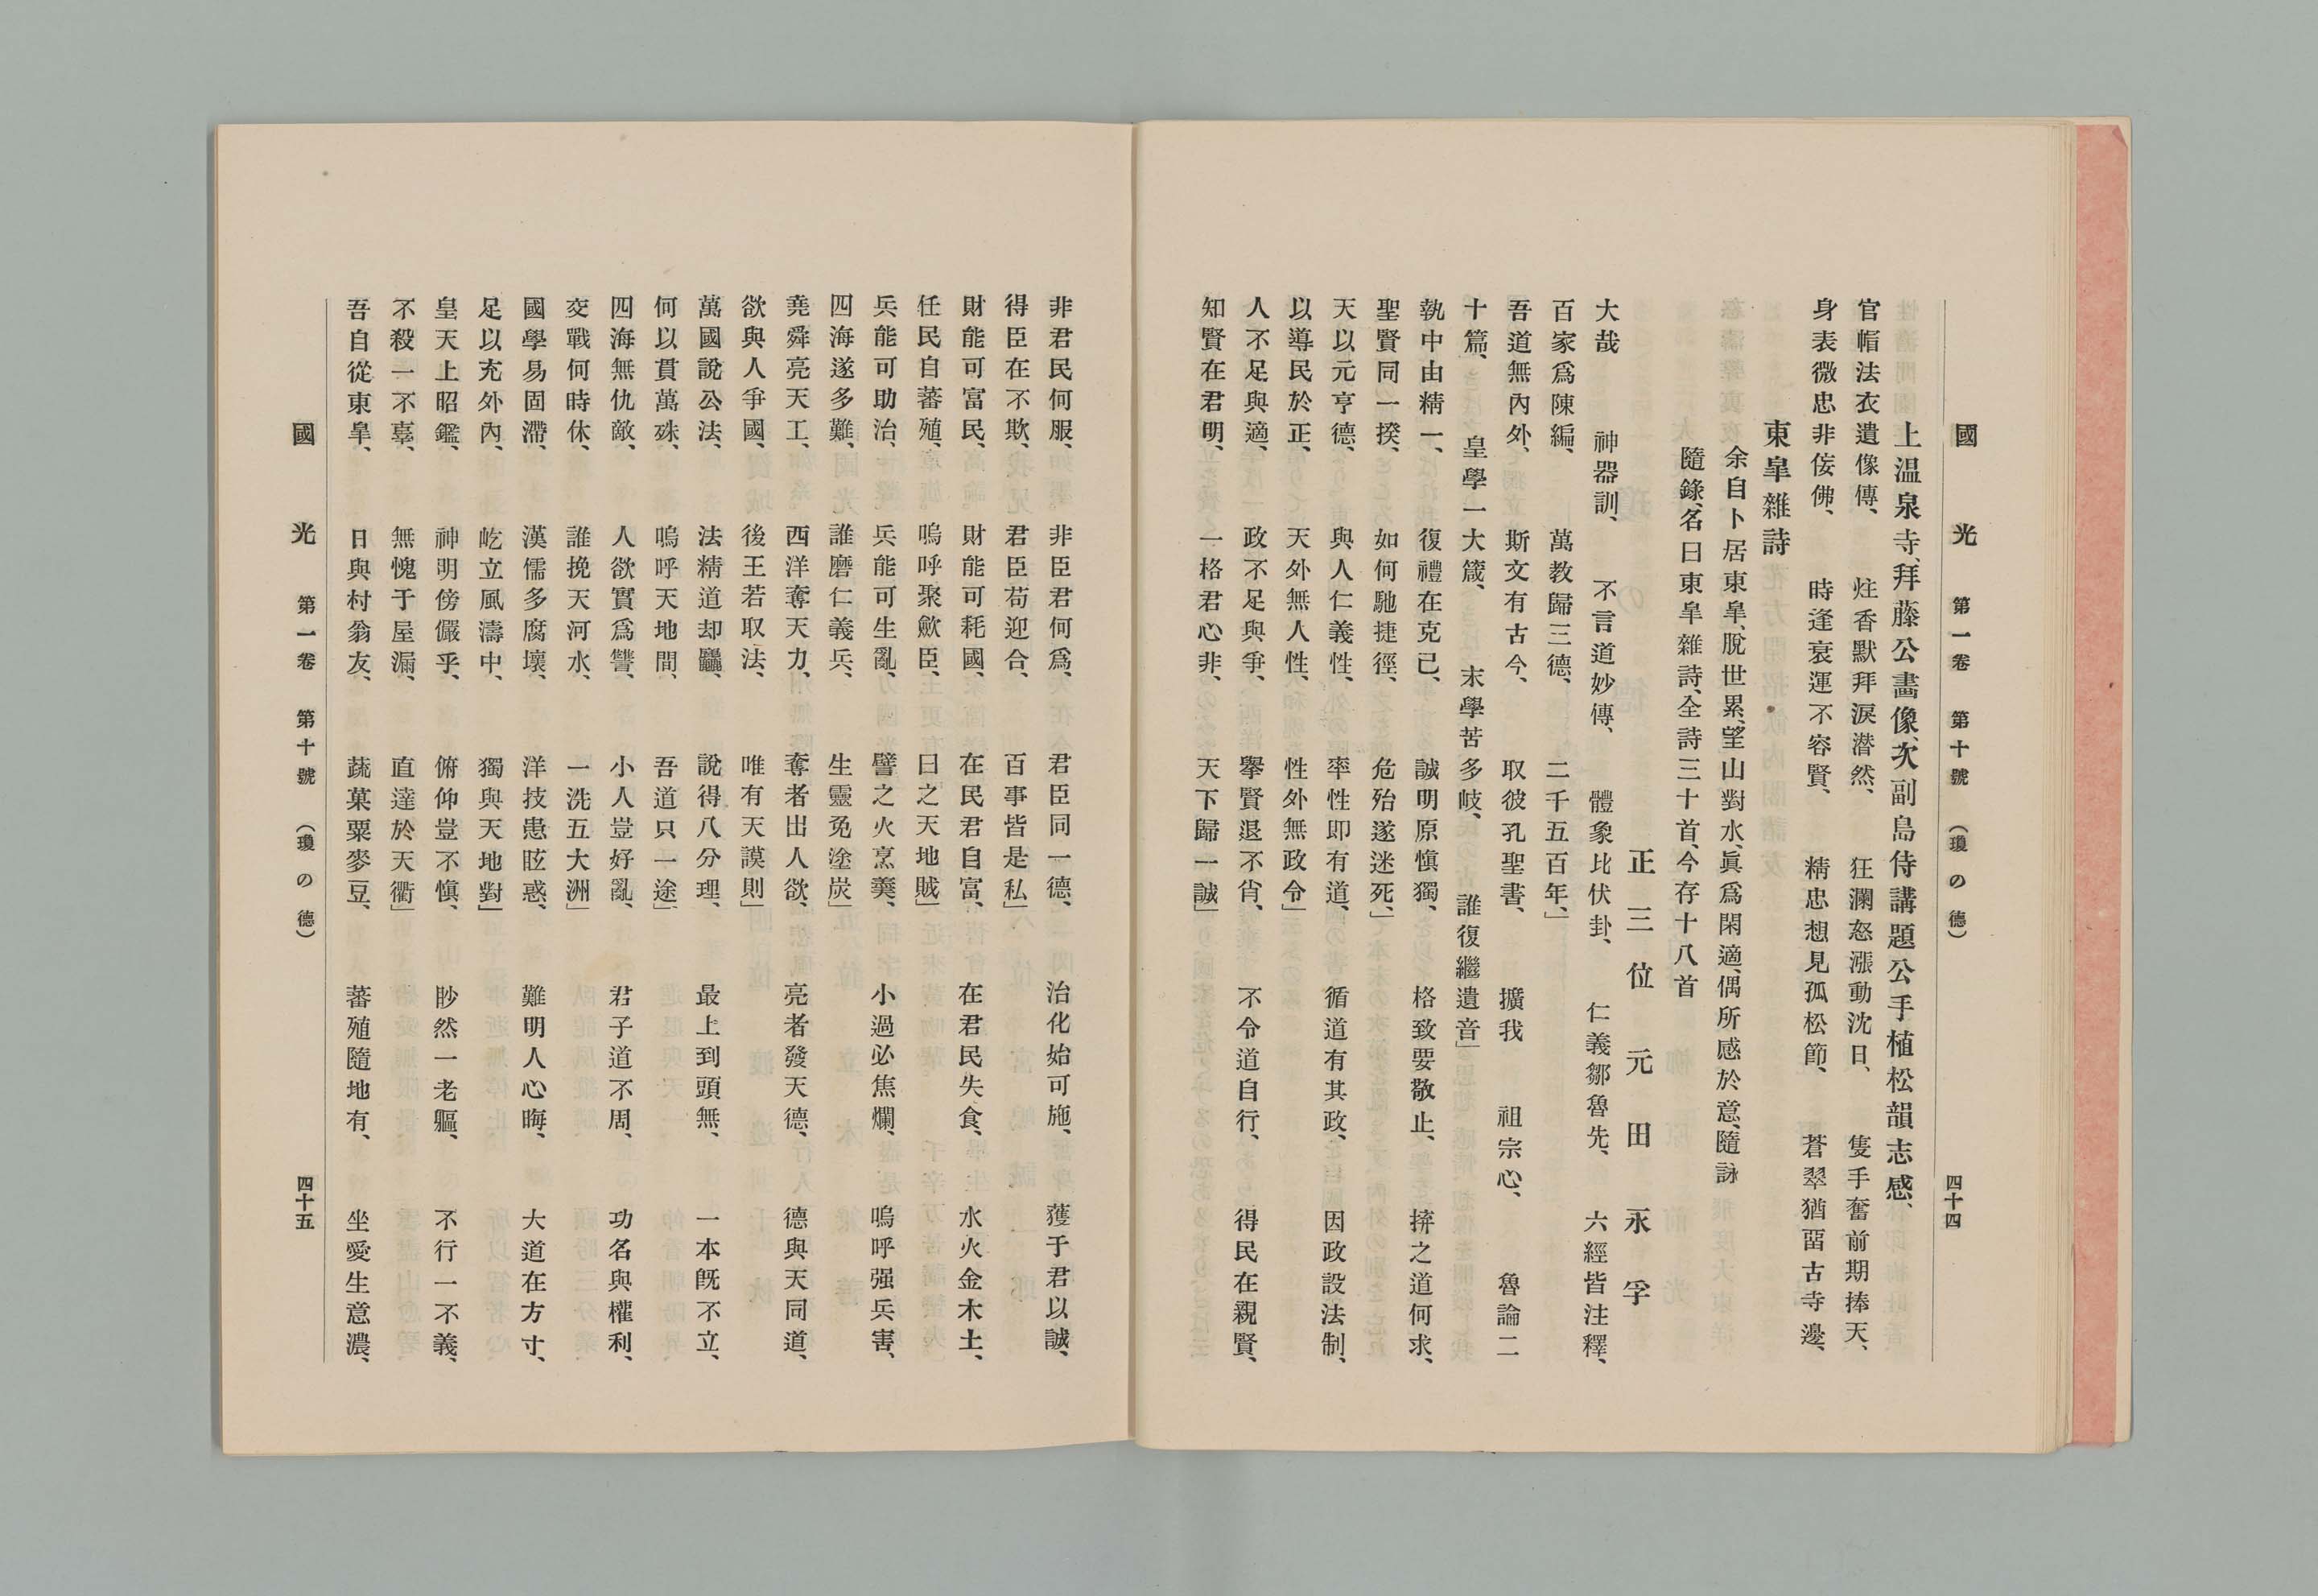 國光 第一卷 第十號 (瓊の德) 四十四
上温泉寺、拜藤公畵像、次副島侍講題公手植松韻志感、
官帽法衣遺像傳、 炷香默拜淚潜然、 狂瀾怒漲動沈日、 隻手奮前期捧天、
身表微忠非侫佛、 時逢衰運不容賢、 精忠想見孤松節、 蒼翠猶畱古寺邊、
東皐雜詩
余自卜居東皐、脫世累、望山對水、眞爲閑適、偶所感於意、隨詠
隨錄、名曰東皐雜詩、全詩三十首、今存十八首
正三位元田永孚
大哉 神器訓、 不言道妙傳、 體象比伏卦、 仁義鄒魯先、 六經皆注釋、
百家爲陳編、 萬教歸三德、 二千五百年、」
吾道無內外、 斯文有古今、 取彼孔聖書、 擴我 祖宗心、 魯論二
十篇、 皇學一大箴、 末學苦多岐、 誰復繼遺音」
執中由精一、 復禮在克己、 誠明原愼獨、 格致要敬止、 擠之道何求、
聖賢同一揆、 如何馳捷徑、 危殆遂迷死、」
天以元亨德、 與人仁義性、 率性即有道、 循道有其政、 因政設法制、
以導民於正、 天外無人性、 性外無政令」
人不足與適、 政不足與爭、 擧賢退不肖、 不令道自行、 得民在親賢、
知賢在君明、 一格君心非、 天下歸一誠」
非君民何服、 非臣君何爲、 君臣同一德、 治化始可施、 獲于君以誠、
得臣在不欺、 君臣苟迎合、 百事皆是私」
財能可富民、 財能可耗國、 在民君自富、 在君民失食、 水火金木土、
任民自蕃殖、 嗚呼聚歛臣、 曰之天地賊」
兵能可助治、 兵能可生亂、 譬之火烹羹、 小過必焦爛、 嗚呼强兵害、
四海遂多難、 誰磨仁義兵、 生靈免塗炭」
堯舜亮天工、 西洋奪天力、 奪者出人欲、 亮者發天德、 德與天同道、
欲與人爭國、 後王若取法、 唯有天謨則」
萬國說公法、 法精道却麤、 說得八分理、 最上到頭無、 一本旣不立、
何以貫萬殊、 嗚呼天地間、 吾道只一途」
四海無仇敵、 人欲實爲讐、 小人豈好亂、 君子道不周、 功名與權利、
交戰何時休、 誰挽天河水、 一洗五大洲」
國學易固滯、 漢儒多腐壞、 洋技患眩惑、 難明人心晦、 大道在方寸、
足以充外內、 屹立風濤中、 獨與天地對」
皇天上昭鑑、 神明傍儼乎、 俯仰豈不愼、 眇然一老軀、 不行一不義、
不殺一不辜、 無愧于屋漏、 直達於天衢」
吾自從東皐、 日與村翁友、 蔬菓粟麥豆、 蕃殖隨地有、 坐愛生意濃、
國光 第一卷 第十號 (瓊の德) 四十五